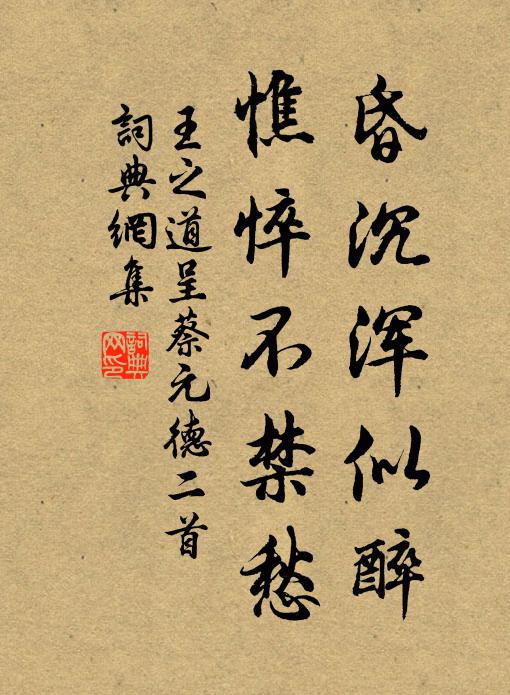 昏沉浑似醉
憔悴不禁愁
王之道呈蔡元德二首
詞典網集
詞典网印